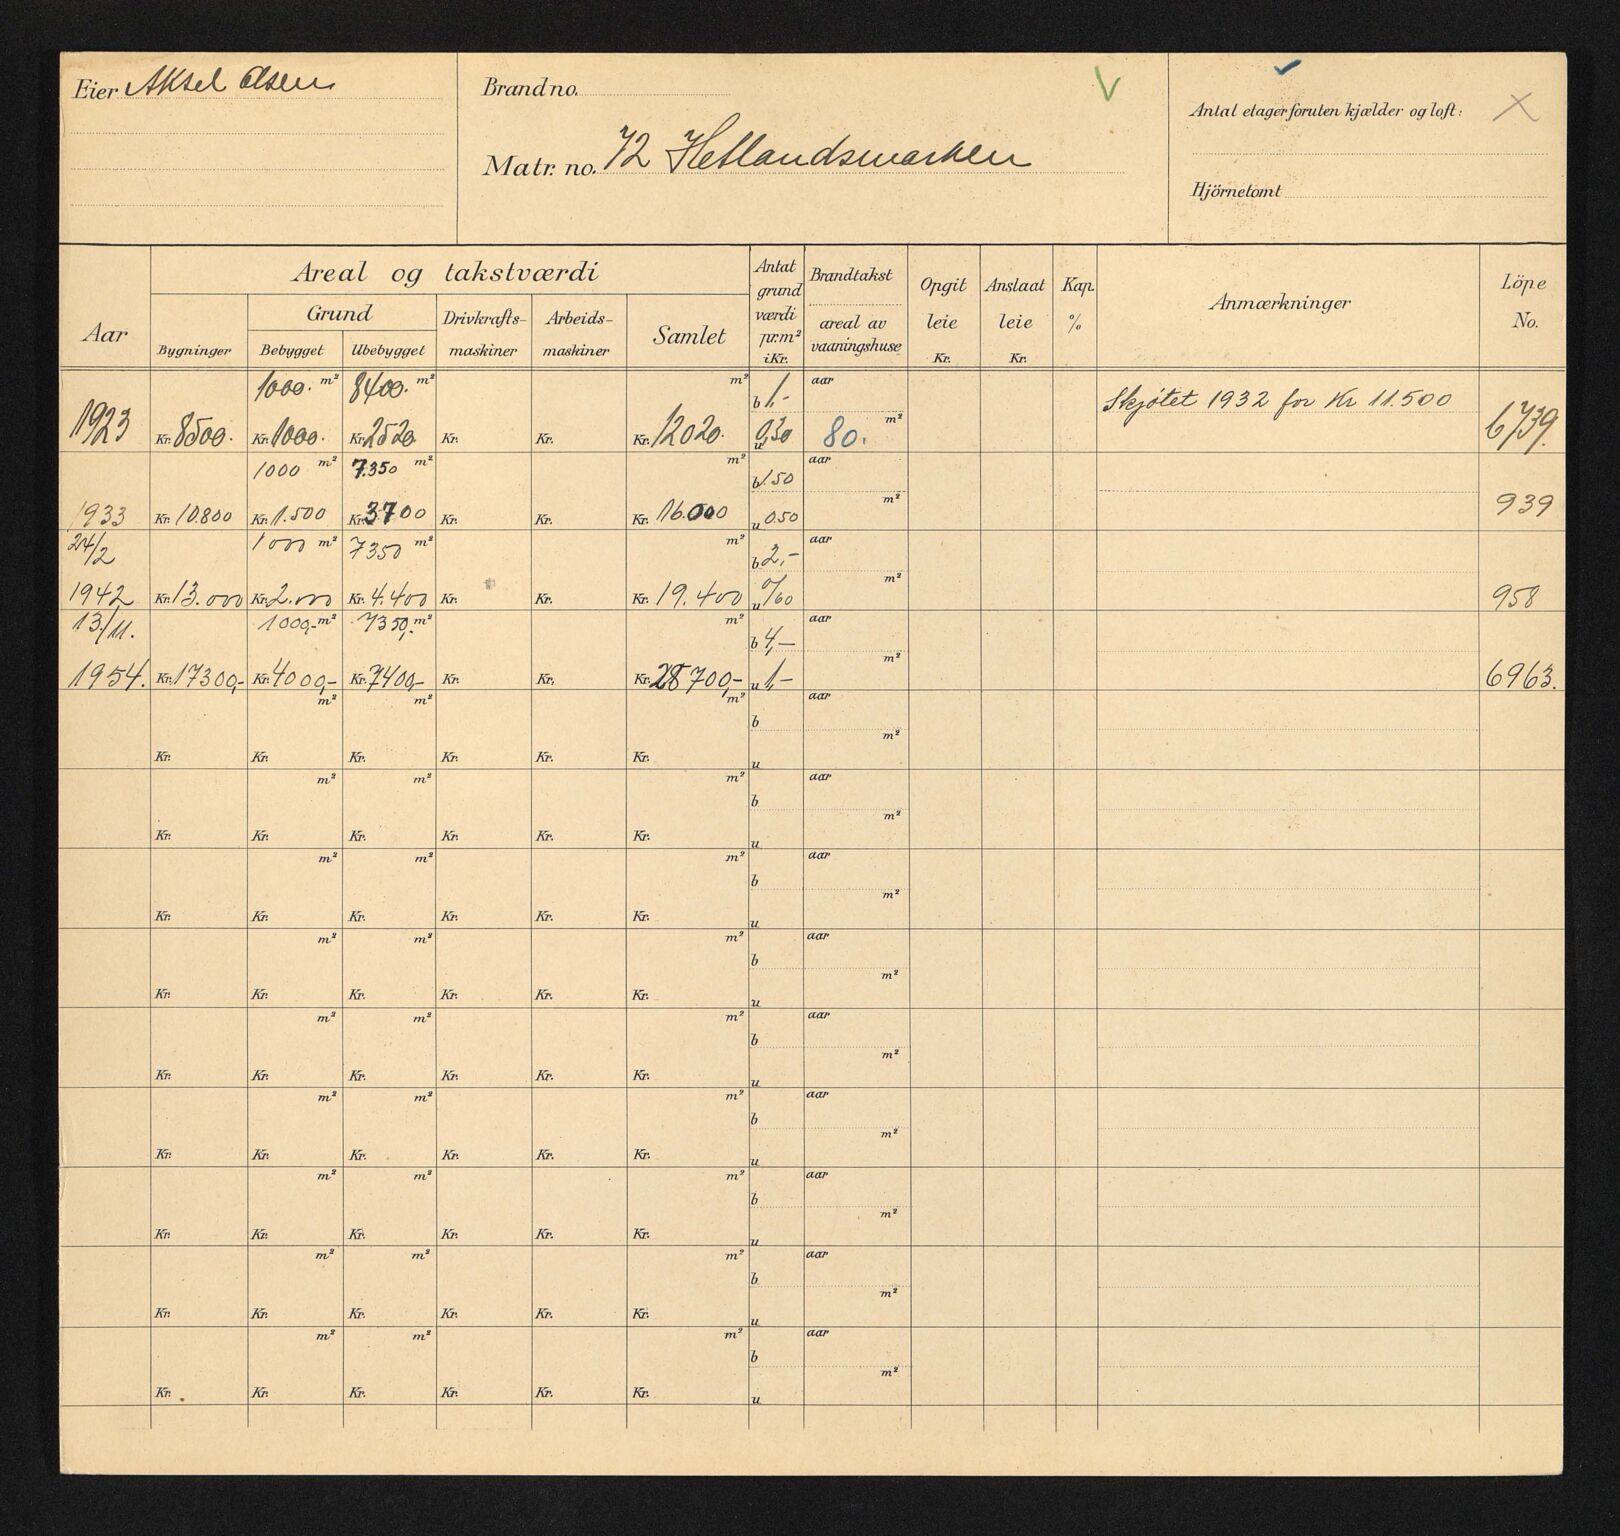 Eier Aksel Olsen
Brand no.
Matr. no. 72 Hetlandsmarken
V
Antal etager foruten kjælder og loft: X
Hjörnetomt
Areal og takstværdi
Aar
Bygninger
Grund
Bebygget
Ubebygget
Drivkrafts-
maskiner
Arbeids-
maskiner
Samlet
Antat
grund
værdi
pr. m²
i Kr.
Brandtakst
areal av
vaaningshuse
Opgit
leie
Kr.
Anslaat
leie
Kr.
Kap.
%
Anmærkninger
Löpe
No.
1000. m² 8400. m² m² b 1,- aar Skjötet 1932 for Kr 11.500
1923 Kr. 8500. Kr. 1000. Kr. 2520 Kr. Kr. Kr. 12020. u 0,30 80. m² 6739.
1000 m² 7.350 m² m² b 1.50 aar
1933 Kr. 10.800 Kr. 1.500 Kr. 3700 Kr. Kr. Kr. 16.000 u 0.50 m² 939
24/2 1000 m² 7350 m² m² b 2,- aar
1942 Kr. 13.000 Kr. 2.000 Kr. 4.400 Kr. Kr. Kr. 19.400 u 0/60 m² 958
13/11. 1000,- m² 7350,- m² m² b 4,- aar
1954. Kr. 17300,- Kr. 4000,- Kr. 7400,- Kr. Kr. Kr. 28700,- u 1,- m² 6963.
m² m² m² b aar
Kr. Kr. Kr. Kr. Kr. Kr. u m²
m² m² m² b aar
Kr. Kr. Kr. Kr. Kr. Kr. u m²
m² m² m² b aar
Kr. Kr. Kr. Kr. Kr. Kr. u m²
m² m² m² b aar
Kr. Kr. Kr. Kr. Kr. Kr. u m²
m² m² m² b aar
Kr. Kr. Kr. Kr. Kr. Kr. u m²
m² m² m² b aar
Kr. Kr. Kr. Kr. Kr. Kr. u m²
m² m² m² b aar
Kr. Kr. Kr. Kr. Kr. Kr. u m²
m² m² m² b aar
Kr. Kr. Kr. Kr. Kr. Kr. u m²
m² m² m² b aar
Kr. Kr. Kr. Kr. Kr. Kr. u m²